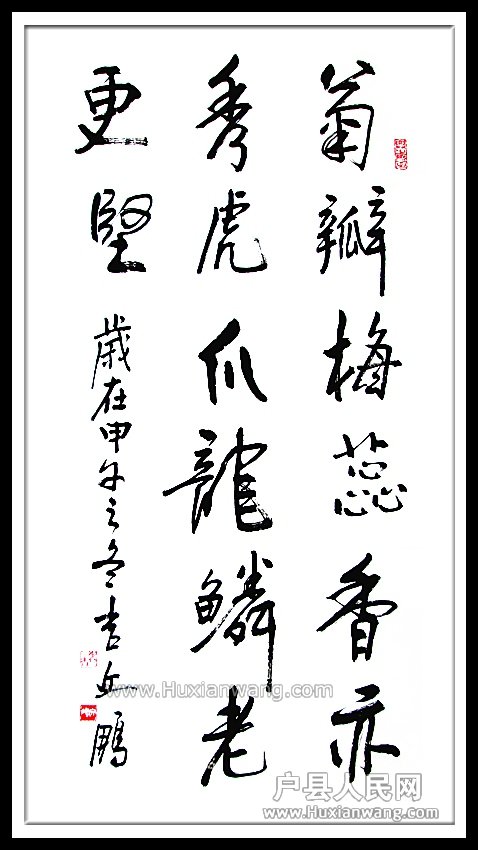 菊瓣梅蕊香亦
秀虎爪龍鱗老
更堅
歲在甲午之冬李岳鵬
www.Huxianwang.com
户县人民网
www.Huxianwang.com